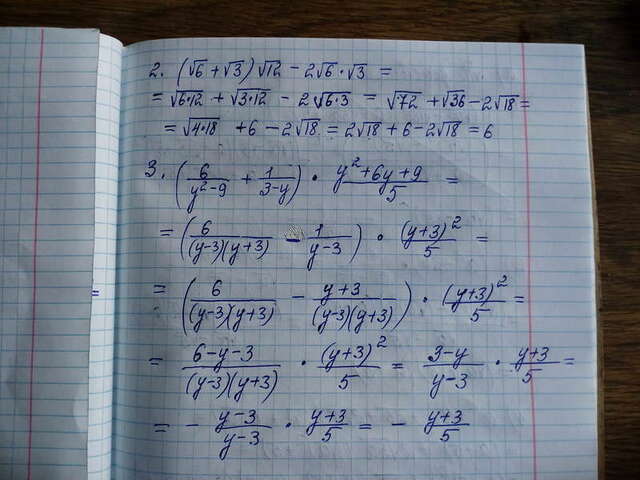 2. (√6 + √3)√12 − 2√6 · √3 =
= √6·12 + √3·12 − 2√6·3 = √72 + √36 − 2√18 =
= √4·18 + 6 − 2√18 = 2√18 + 6 − 2√18 = 6
3. (6/(y²−9) + 1/(3−y)) · (y²+6y+9)/5 =
= (6/((y−3)(y+3)) − 1/(y−3)) · (y+3)²/5 =
= (6/((y−3)(y+3)) − (y+3)/((y−3)(y+3))) · (y+3)²/5 =
= (6−y−3)/((y−3)(y+3)) · (y+3)²/5 = (3−y)/(y−3) · (y+3)/5 =
= − (y−3)/(y−3) · (y+3)/5 = − (y+3)/5
=